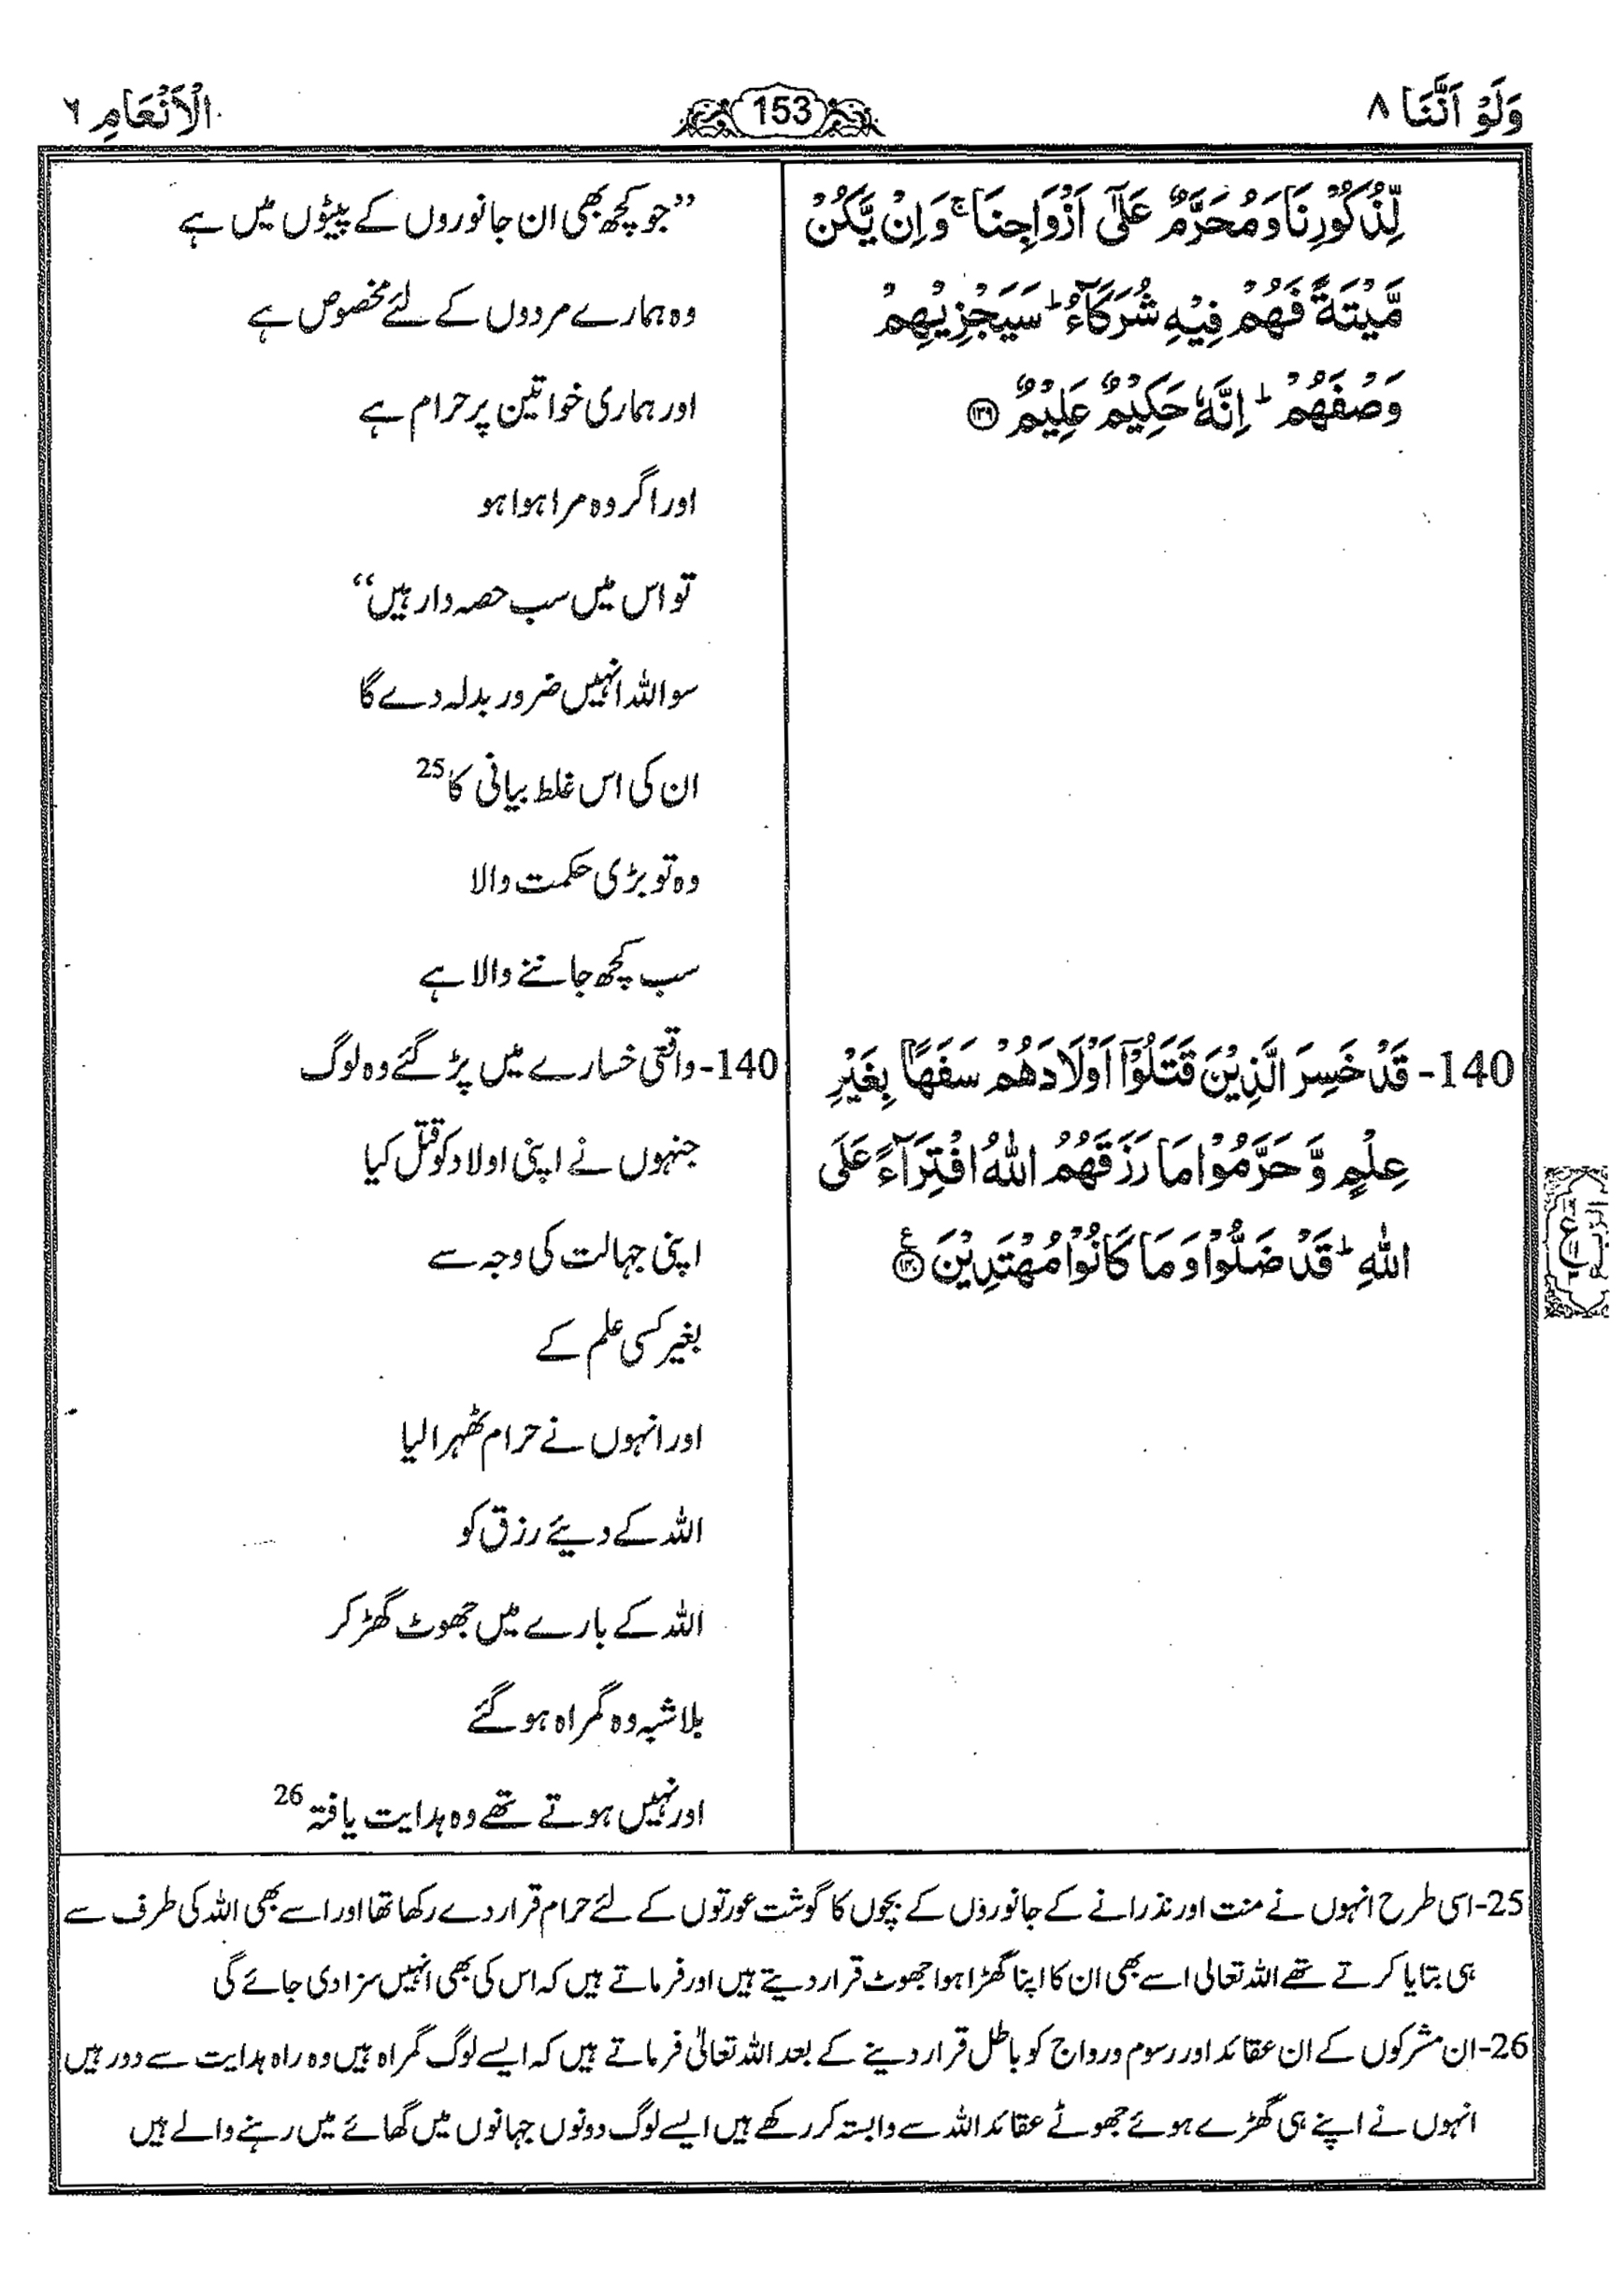 وَلَوْ اَنَّنَا ٨
153
الْاَنْعَامِ ٦
لِّذُكُوْرِنَا وَ مُحَرَّمٌ عَلٰٓى اَزْوَاجِنَا ۚ وَ اِنْ يَّكُنْ
مَّيْتَةً فَهُمْ فِيْهِ شُرَكَآءُ ؕ سَيَجْزِيْهِمْ
وَصْفَهُمْ ؕ اِنَّهٗ حَكِيْمٌ عَلِيْمٌ ۝۱۳۹
140- قَدْ خَسِرَ الَّذِيْنَ قَتَلُوْۤا اَوْلَادَهُمْ سَفَهًۢا بِغَيْرِ
عِلْمٍ وَّ حَرَّمُوْا مَا رَزَقَهُمُ اللّٰهُ افْتِرَآءً عَلَى
اللّٰهِ ؕ قَدْ ضَلُّوْا وَ مَا كَانُوْا مُهْتَدِيْنَ ۝۱۴۰ ع
”جو کچھ بھی ان جانوروں کے پیٹوں میں ہے
وہ ہمارے مردوں کے لئے مخصوص ہے
اور ہماری خواتین پر حرام ہے
اور اگر وہ مرا ہوا ہو
تو اس میں سب حصہ دار ہیں“
سو اللہ انہیں ضرور بدلہ دے گا
ان کی اس غلط بیانی کا 25
وہ تو بڑی حکمت والا
سب کچھ جاننے والا ہے
140- واقعی خسارے میں پڑ گئے وہ لوگ
جنہوں نے اپنی اولاد کو قتل کیا
اپنی جہالت کی وجہ سے
بغیر کسی علم کے
اور انہوں نے حرام ٹھہرا لیا
اللہ کے دیئے رزق کو
اللہ کے بارے میں جھوٹ گھڑ کر
بلاشبہ وہ گمراہ ہو گئے
اور نہیں ہوتے تھے وہ ہدایت یافتہ 26
25- اسی طرح انہوں نے منت اور نذرانے کے جانوروں کے بچوں کا گوشت عورتوں کے لئے حرام قرار دے رکھا تھا اور اسے بھی اللہ کی طرف سے
ہی بتایا کرتے تھے اللہ تعالی اسے بھی ان کا اپنا گھڑا ہوا جھوٹ قرار دیتے ہیں اور فرماتے ہیں کہ اس کی بھی انہیں سزا دی جائے گی
26- ان مشرکوں کے ان عقائد اور رسوم و رواج کو باطل قرار دینے کے بعد اللہ تعالیٰ فرماتے ہیں کہ ایسے لوگ گمراہ ہیں وہ راہ ہدایت سے دور ہیں
انہوں نے اپنے ہی گھڑے ہوئے جھوٹے عقائد اللہ سے وابستہ کر رکھے ہیں ایسے لوگ دونوں جہانوں میں گھاٹے میں رہنے والے ہیں